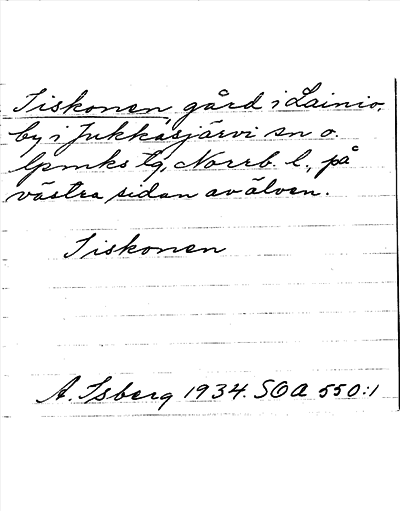 Tiskonen, gård i Lainio,
by i Jukkasjärvi sn o.
lpmks tg, Norrb. l., på
västra sidan av älven.
Tiskonen
A. Isberg 1934. SOA 550:1